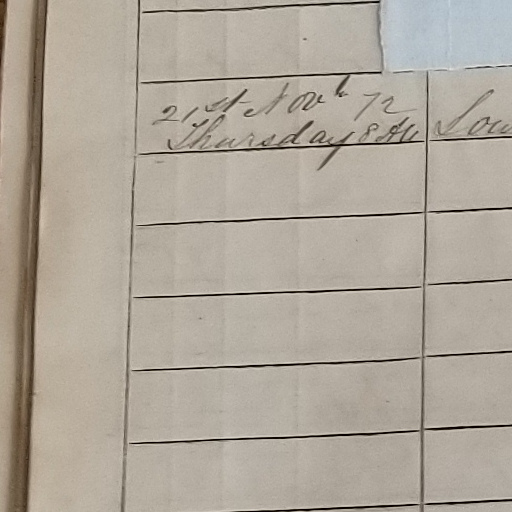 21st Novr 72
Thursday 8 AM